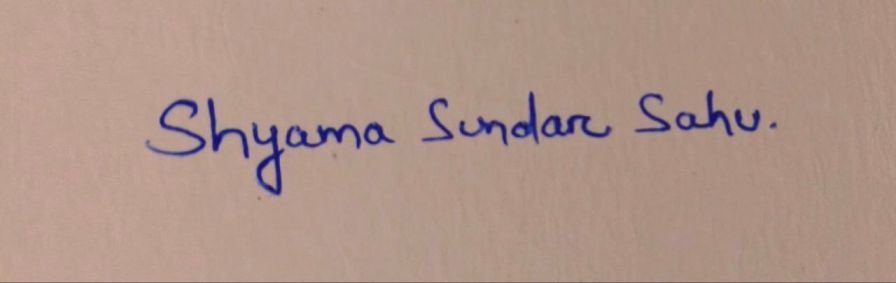 Shyama Sundar Sahu.